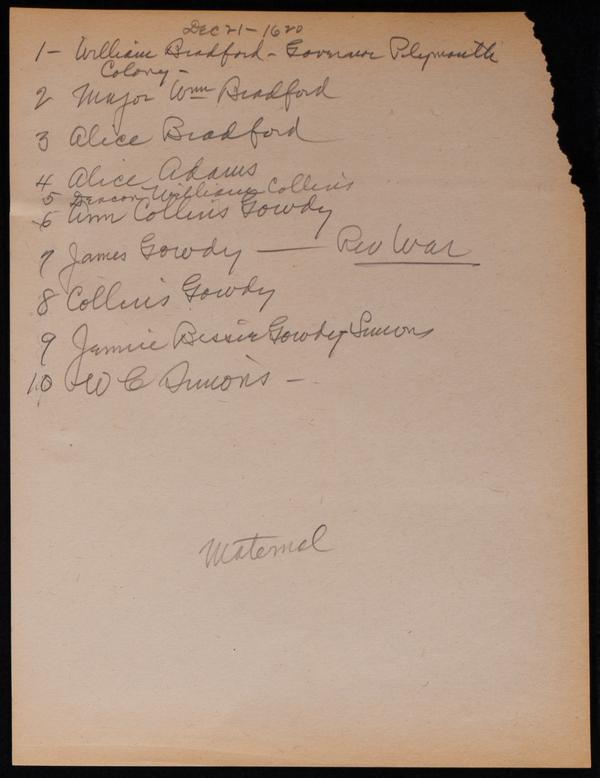 Dec 21 - 1620
1 - William Bradford - Governor Plymouth
Colony -
2 Major Wm Bradford
3 Alice Bradford
4 Alice Adams
5 Deacon William Collins
6 Ann Collins Gowdy
7 James Gowdy — Rev War
8 Collins Gowdy
9 Jennie Bessie Gowdy Simons
10 W C Simons -
Maternal